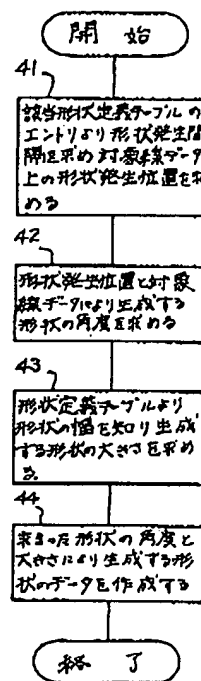 開始
41
該当形状定義テーブルの
エントリより形状発生間
隔を求め対象線データ
上の形状発生位置を求
める
42
形状発生位置と対象
線データにより生成する
形状の角度を求める
43
形状定義テーブルより
形状の幅を知り生成
する形状の大きさを求め
る
44
求まった形状の角度と
大きさにより生成する形
状のデータを作成する
終了